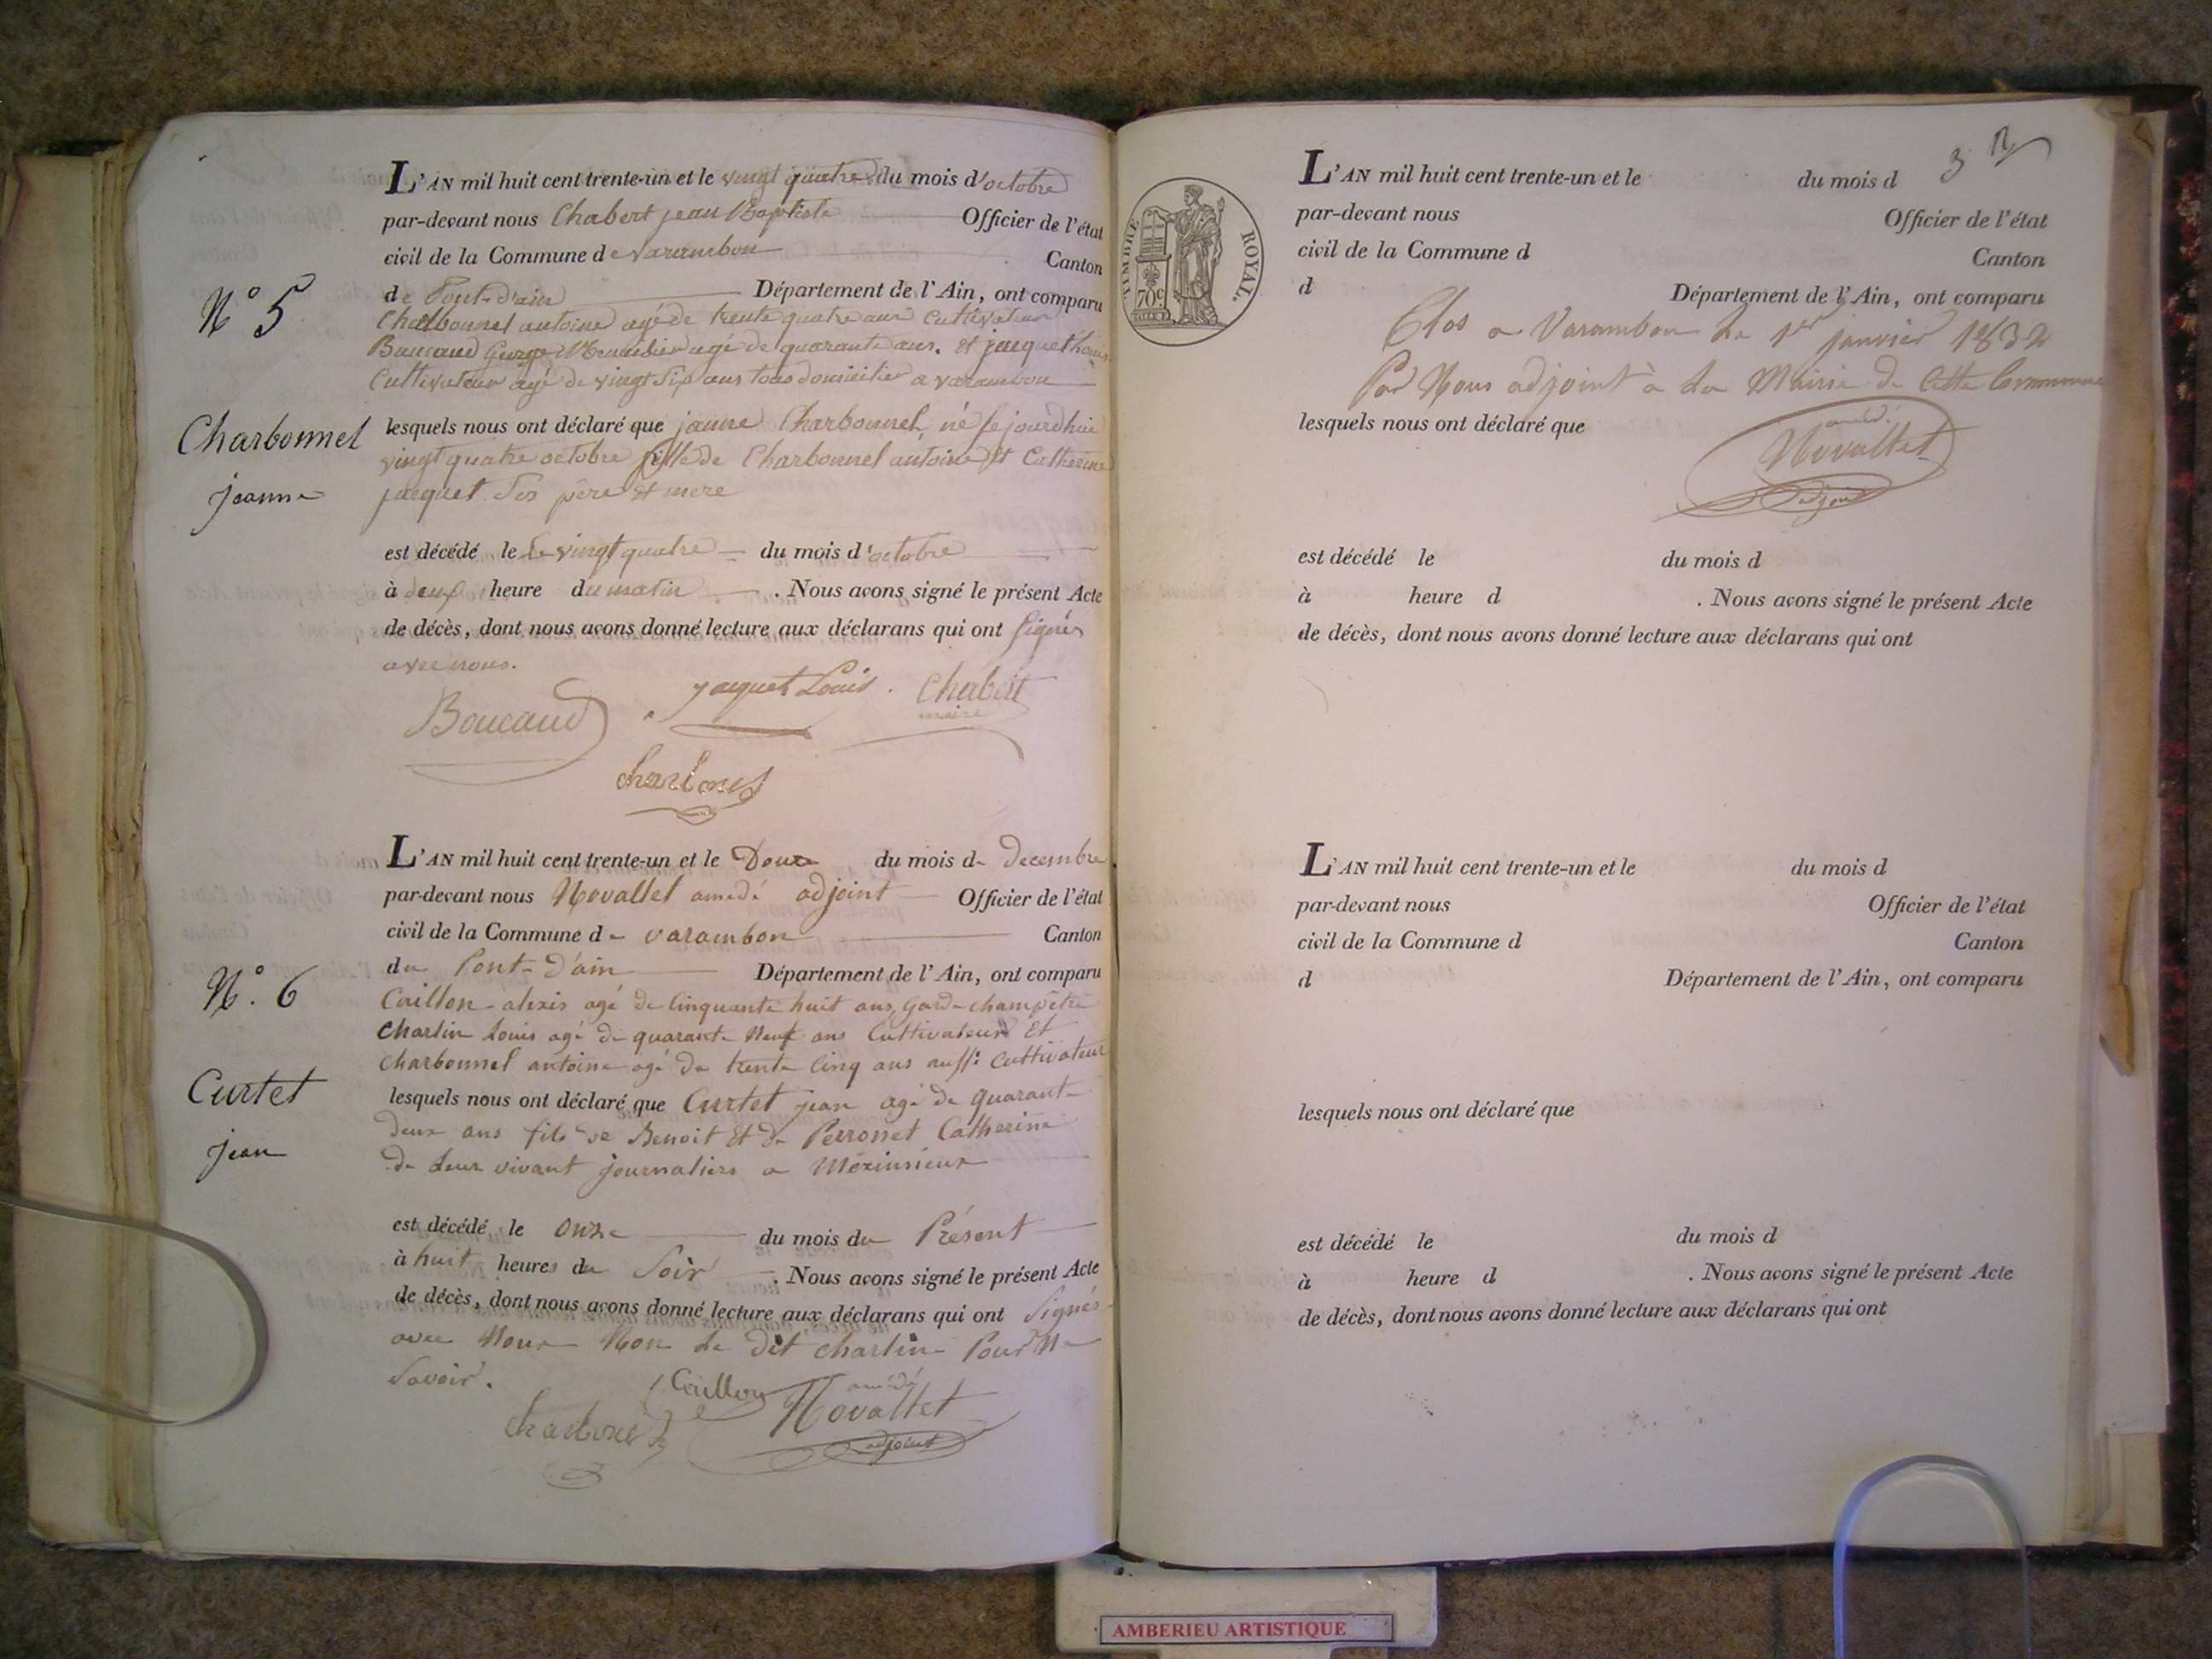 L'AN mil huit cent trente-un et le vingt quatre du mois d'octobre
par-devant nous Chabert jean Baptiste Officier de l'état
civil de la Commune de varambon Canton
de Pont-d'ain Département de l'Ain, ont comparu
Charbonnel antoine agé de trente quatre ans Cultivateur
Baucaud George Menuisier agé de quarante ans. et jacquet Louis
Cultivateur agé de vingt six ans tous domicilier a varambon
N° 5
Charbonnel
jeanne
lesquels nous ont déclaré que janne Charbonnel né sejourdhui
vingt quatre octobre fille de Charbonnel antoine et Catherine
jacquet Ses père et mere
est décédé le le vingt quatre du mois d'octobre
à deux heure du matin . Nous avons signé le présent Acte
de décès, dont nous avons donné lecture aux déclarans qui ont signés
avec nous.
Baucaud jaquet Louis. Chabert
maire
charbonel
L'AN mil huit cent trente-un et le Douze du mois de decembre
par-devant nous Novallet amedé adjoint Officier de l'état
civil de la Commune de varambon Canton
du Pont-D'ain Département de l'Ain, ont comparu
Caillon alexis agé de Cinquante huit ans, Garde champêtre
Charlin Louis agé de quarante Neuf ans Cultivateur Et
Charbonnel antoine agé de trente Cinq ans aussi Cultivateur
N°. 6
Curtet
jean
lesquels nous ont déclaré que Curtet jean agé de quarante
deux ans fils de Benoit Et de Perronet Catherine
de Leur vivant journaliers a Meximieux
est décédé le onze du mois du Présent
à huit heures du Soir . Nous avons signé le présent Acte
de décès, dont nous avons donné lecture aux déclarans qui ont Signés
avec Nous Non Le Dit Charlin Pour Ne
Savoir.
Caillon amédé
Novallet
charbonel adjoint
3
L'AN mil huit cent trente-un et le du mois d
par-devant nous Officier de l'état
civil de la Commune d Canton
d Département de l'Ain, ont comparu
TIMBRE ROYAL.
70c.
Clos a Varambon Le 1er janvier 1832
Par Nous adjoint à La Mairie de Cette Commune
lesquels nous ont déclaré que
amédé
Novallet
adjoint
est décédé le du mois d
à heure d . Nous avons signé le présent Acte
de décès, dont nous avons donné lecture aux déclarans qui ont
L'AN mil huit cent trente-un et le du mois d
par-devant nous Officier de l'état
civil de la Commune d Canton
d Département de l'Ain, ont comparu
lesquels nous ont déclaré que
est décédé le du mois d
à heure d . Nous avons signé le présent Acte
de décès, dont nous avons donné lecture aux déclarans qui ont
AMBERIEU ARTISTIQUE